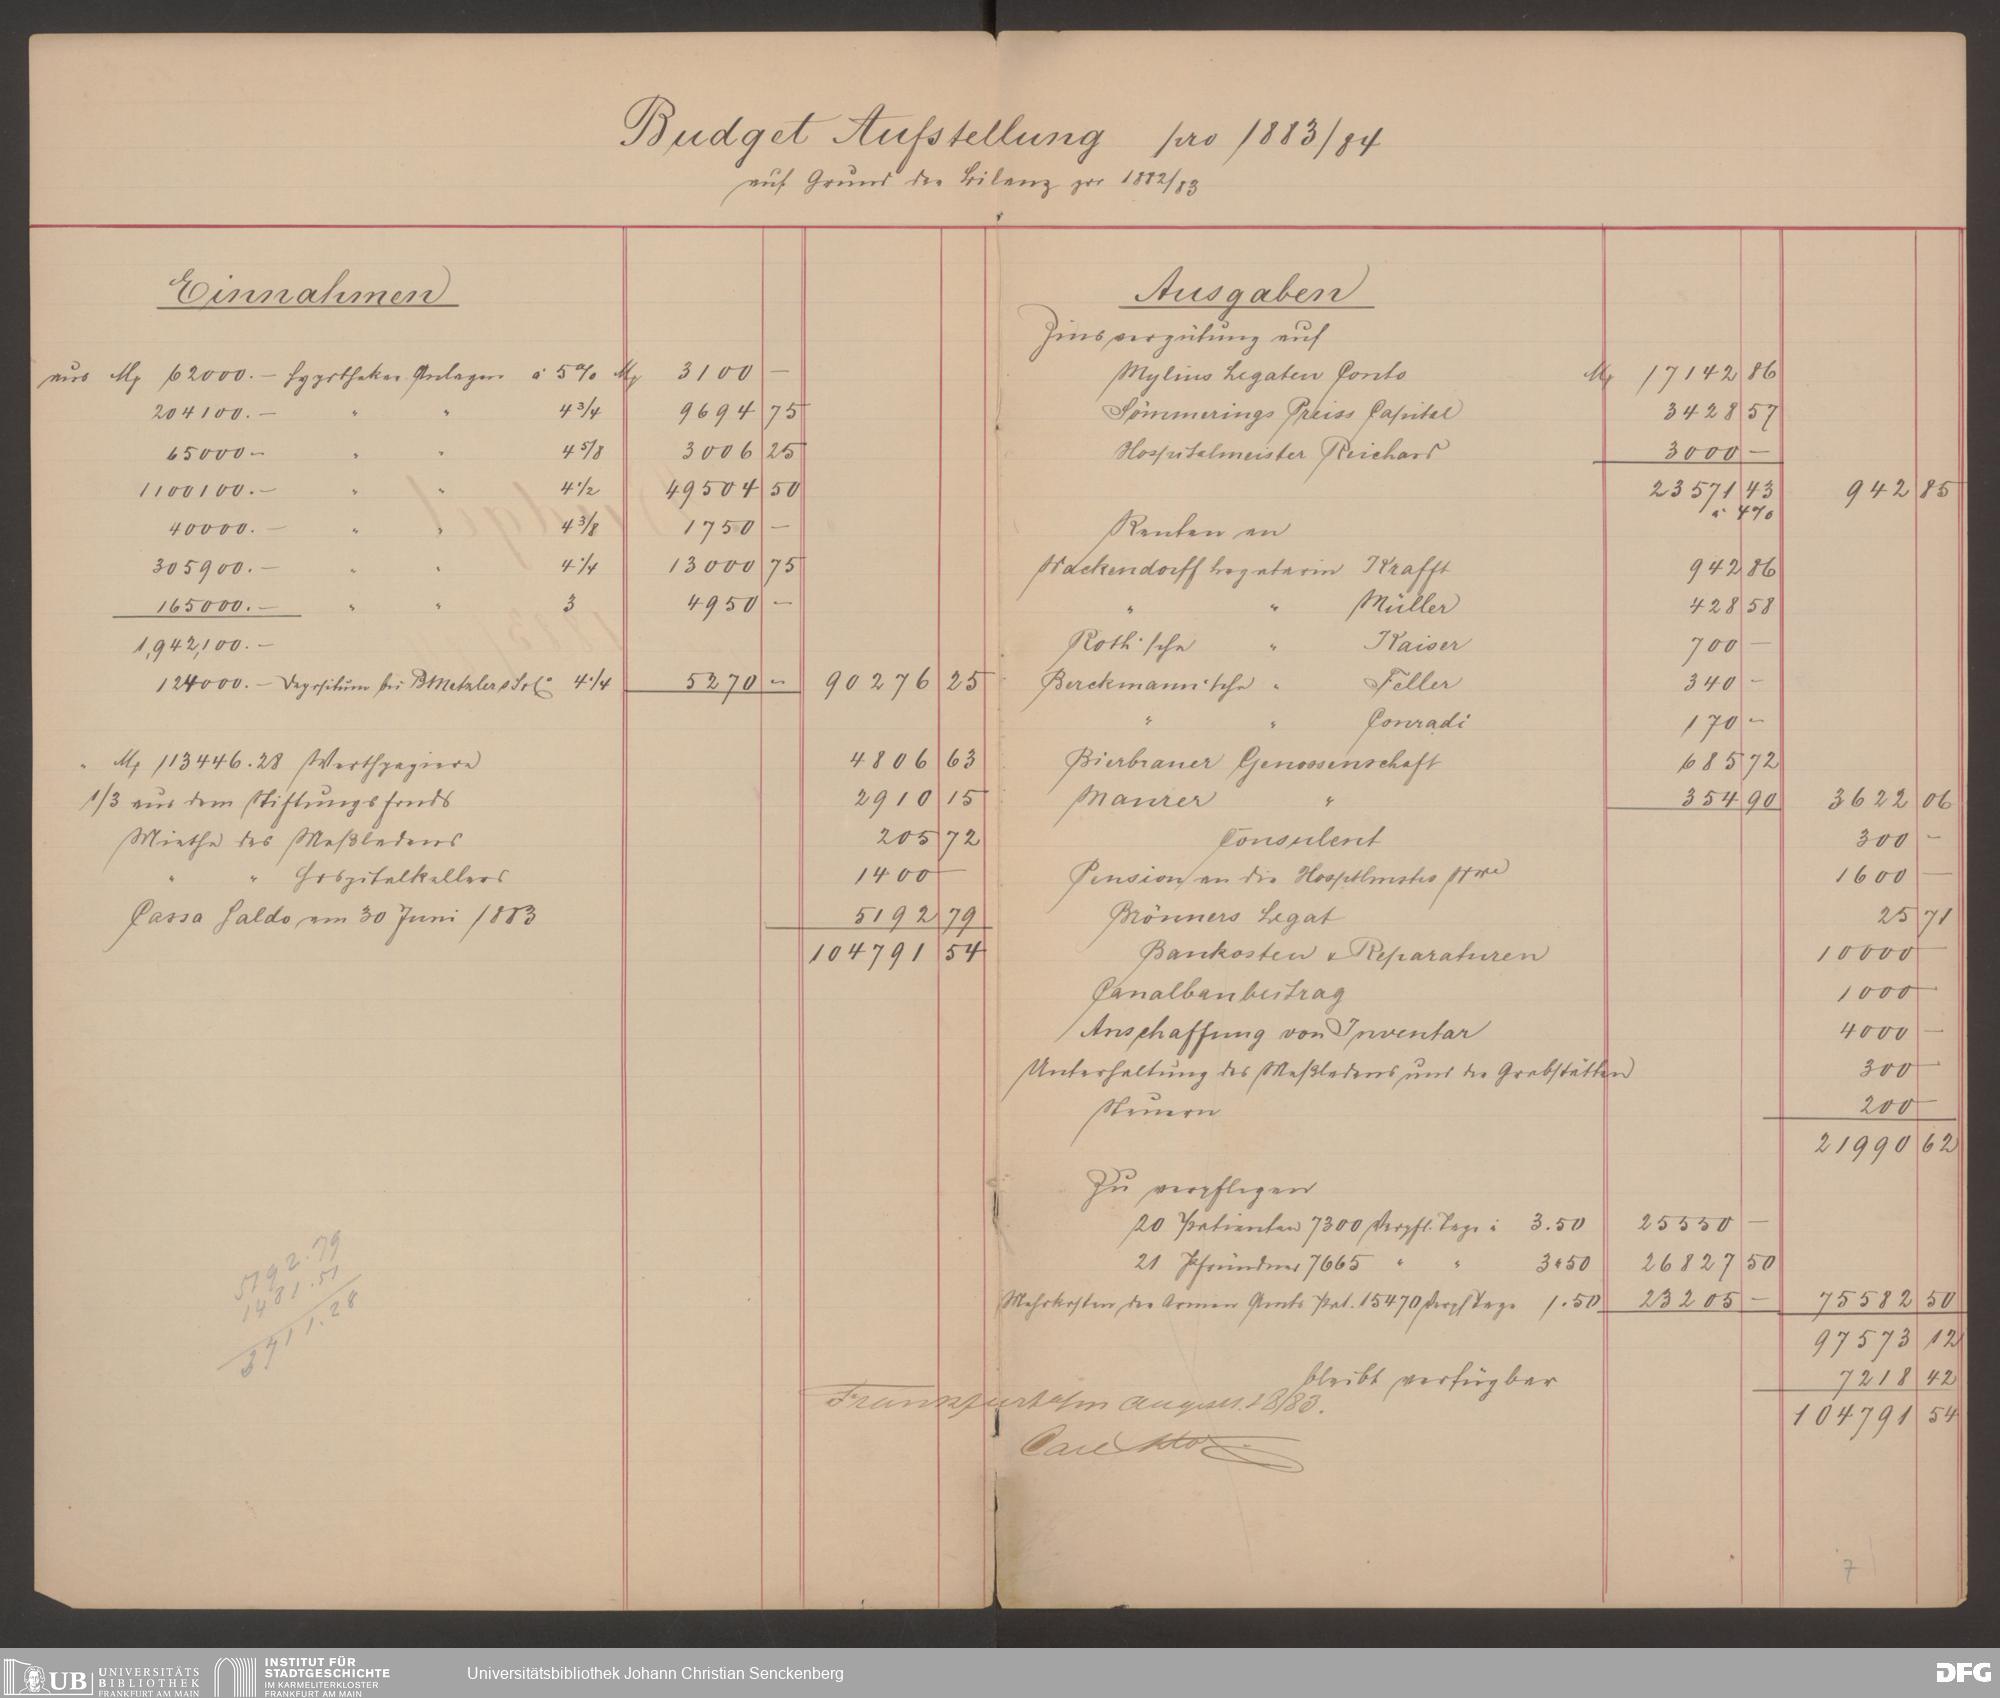 Budget Aufstellung pro 1883/84
auf Grund der Bilanz pro 1882/83
Einnahmen
aus M 62000.— Hypotheken Anlagen à 5% M 3100 —
204100.— " " 4 3/4 9694 75
65000 — " " 4 5/8 3006 25
1100100.— " " 4 1/2 49504 50
40000.— " " 4 3/8 1750 —
305900.— " " 4 1/4 13000 75
165000.— " " 3 4950 —
1,942,100.—
124000.— Depositum bei B Metzler 4 1/4 5270 — 90276 25
" M 113446.28 Werthpapiere 4806 63
1/3 aus dem Stiftungsfonds 2910 15
Miethe des Meßladens 205 72
" " Hospitalkellers 1400 —
Cassa Saldo am 30 Juni 1883 5192 79
104791 54
5192.79
1481.51
3711.28
Ausgaben
Zinsvergütung auf
Mylius Legaten Conto M 17142 86
Sömmerings Preiss Capital 3428 57
Hospitalmeister Reichard 3000 —
23571 43 942 85
à 4%
Renten an
Wackendorff Legatarin Krafft 942 86
" " Müller 428 58
Roth'sche " Kaiser 700 —
Berckmann'sche " Feller 340 —
" " Conradi 170 —
Bierbrauer Genossenschaft 685 72
Maurer " 354 90 3622 06
Consulent 300 —
Pension an die Hosptlmstrs Wwe 1600 —
Brönners Legat 25 71
Baukosten & Reparaturen 10000 —
Canalbaubeitrag 1000 —
Anschaffung von Inventar 4000 —
Unterhaltung des Meßladens und der Grabstätten 300 —
Steuern 200 —
21990 62
Zu verpflegen
20 Patienten 7300 Verpfl. Tage à 3.50 25550 —
21 Pfründner 7665 " " 3.50 26827 50
Mehrkosten der Armen Amts Pat. 15470 Verpfl Tage 1.50 23205 — 75582 50
97573 12
bleibt verfügbar 7218 42
104791 54
Frankfurt a/m August 1883.
Carl
7
UB UNIVERSITÄTS
BIBLIOTHEK
FRANKFURT AM MAIN
INSTITUT FÜR
STADTGESCHICHTE
IM KARMELITERKLOSTER
FRANKFURT AM MAIN
Universitätsbibliothek Johann Christian Senckenberg
DFG